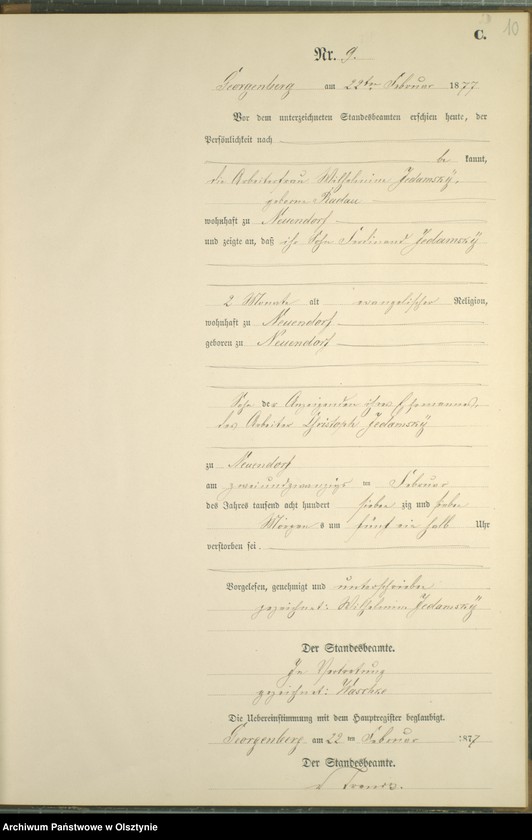 C.
10
Nr. 9.
Georgenberg am 22ten Februar 1877
Vor dem unterzeichneten Standesbeamten erschien heute, der
Persönlichkeit nach
be kannt,
die Arbeiterfrau Wilhelmine Jedamsky,
geborne Radau
wohnhaft zu Neuendorf
und zeigte an, daß ihr Sohn Ferdinand Jedamsky
2 Monate alt evangelischer Religion,
wohnhaft zu Neuendorf
geboren zu Neuendorf
Sohn der Anzeigenden ihres Ehemannes,
des Arbeiter Christoph Jedamsky
zu Neuendorf
am zweiundzwanzigs ten Februar
des Jahres tausend acht hundert sieben zig und sieben
Morgen s um fünf ein halb Uhr
verstorben sei.
Vorgelesen, genehmigt und unterschrieben
gezeichnet: Wilhelmine Jedamsky
Der Standesbeamte.
In Vertretung
gezeichnet: Waschke
Die Uebereinstimmung mit dem Hauptregister beglaubigt.
Georgenberg am 22 ten Februar 1877
Der Standesbeamte.
Archiwum Państwowe w Olsztynie